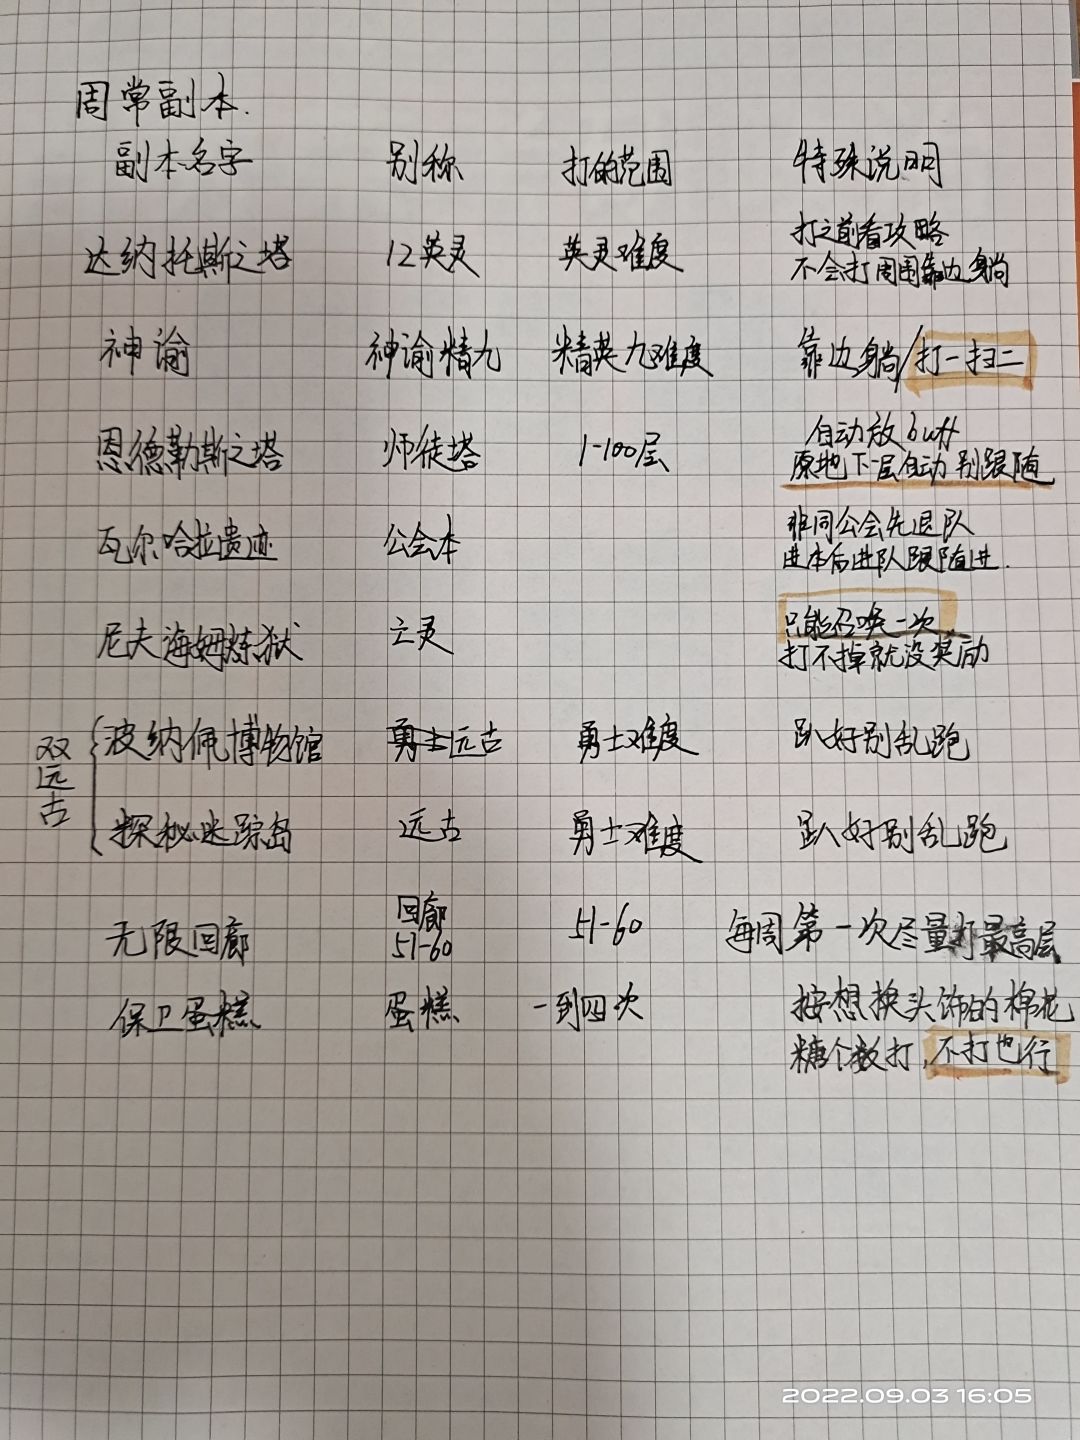 周常副本.
副本名字 别称 打的范围 特殊说明
达纳托斯之塔 12英灵 英灵难度 打之前看攻略
不会打周围靠边躺
神谕 神谕精九 精英九难度 靠边躺/打一扫二
恩德勒斯之塔 师徒塔 1-100层 自动放buff
原地下一层自动别跟随
瓦尔哈拉遗迹 公会本 非同公会先退队
进本后进队跟随进.
尼夫海姆炼狱 亡灵 只能召唤一次
打不掉就没奖励
双远古
波纳佩博物馆 勇士远古 勇士难度 趴好别乱跑
探秘迷踪岛 远古 勇士难度 趴好别乱跑
无限回廊 回廊 51-60 每周第一次尽量打最高层
51-60
保卫蛋糕 蛋糕 一到四次 按想换头饰的棉花
糖个数打,不打也行
2022.09.03 16:05